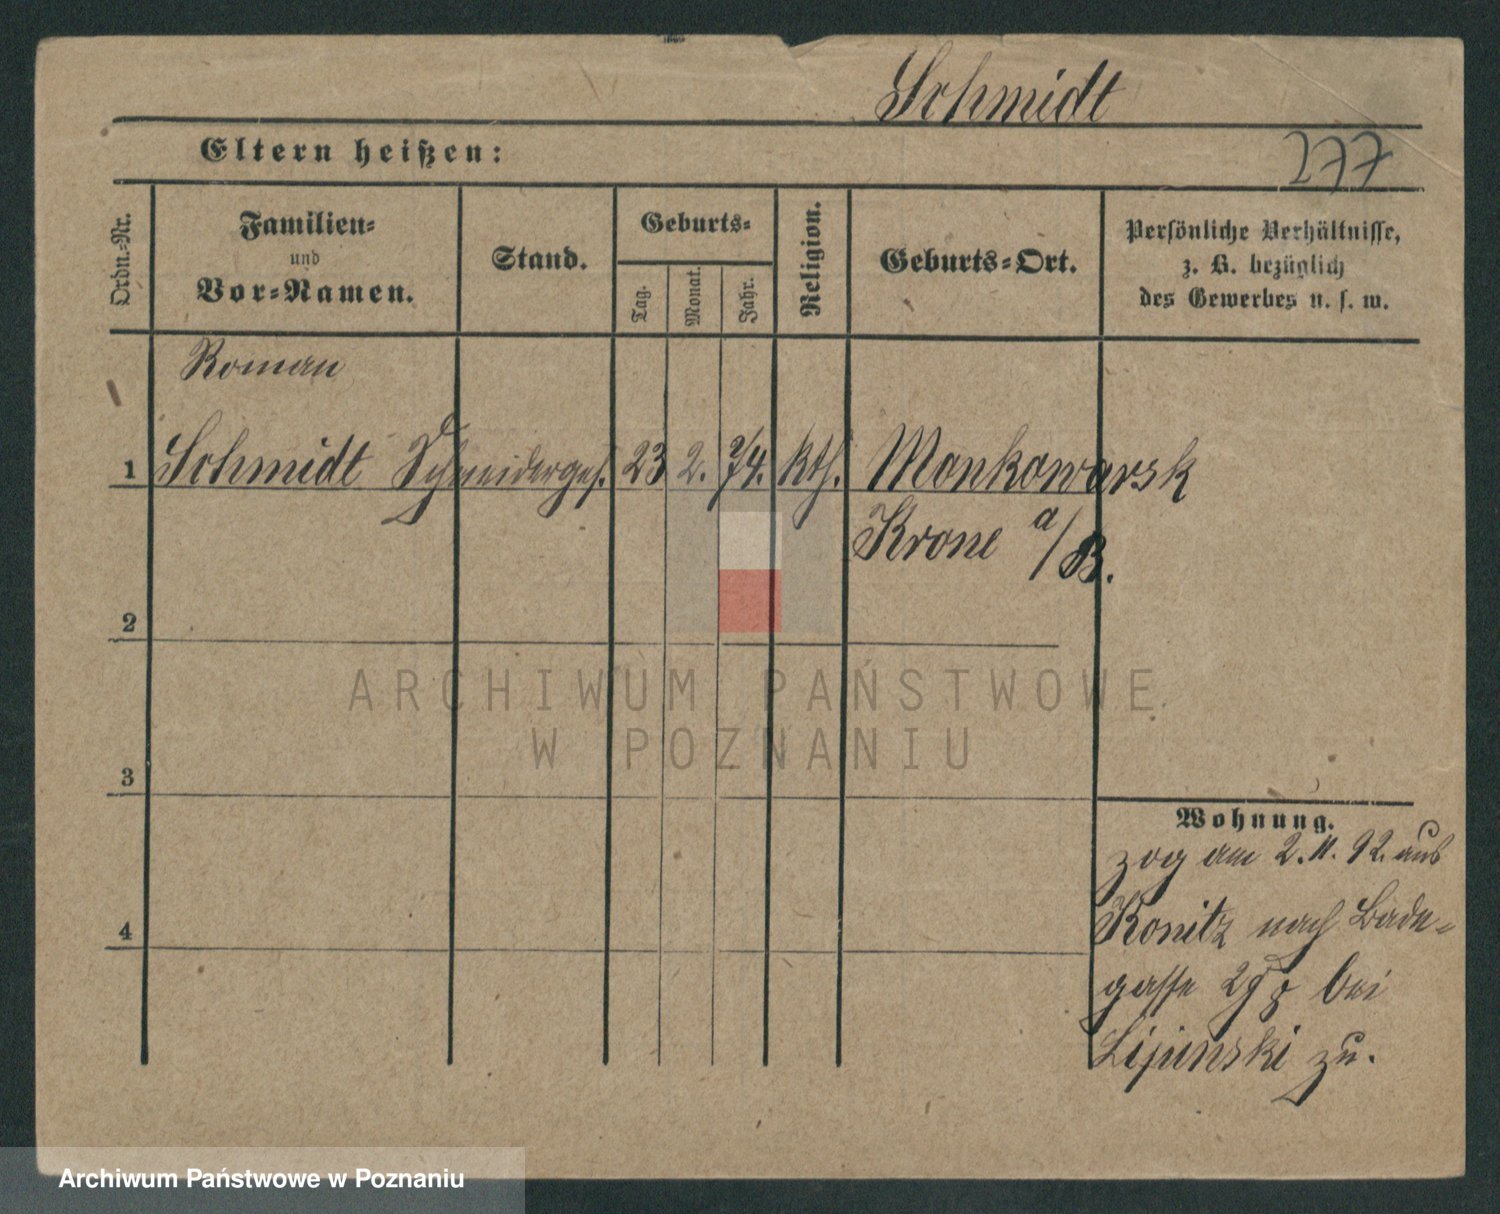 Schmidt
Eltern heißen:
277
Ordn.-Nr.
Familien-
und
Vor-Namen.
Stand.
Geburts-
Tag.
Monat.
Jahr.
Religion.
Geburts-Ort.
Persönliche Verhältnisse,
z. B. bezüglich
des Gewerbes u. s. w.
Roman
1 Schmidt Schneiderges. 23 2. 74. kth. Monkowarsk
Krone a/B.
2
ARCHIWUM PAŃSTWOWE
W POZNANIU
3
Wohnung.
zog am 2.11.92. aus
Konitz nach Bade-
4
gasse bei
Lipinski zu.
Archiwum Państwowe w Poznaniu